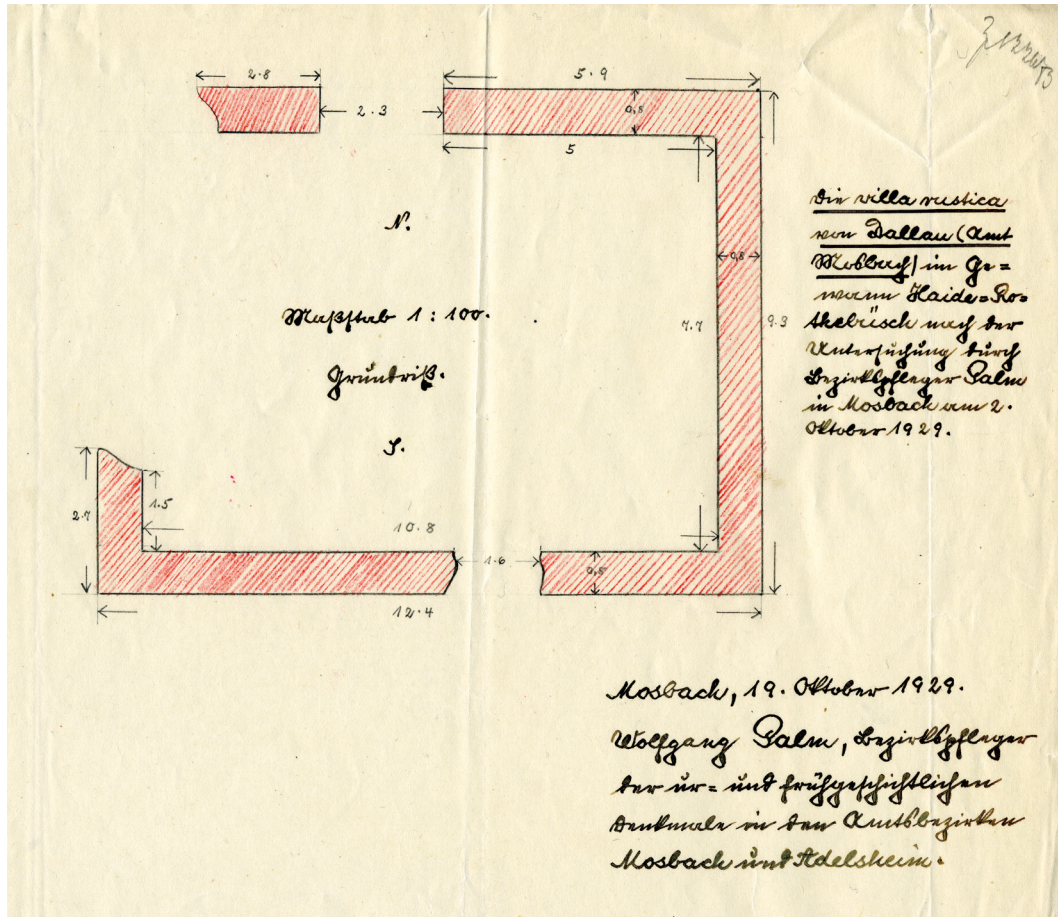 2.8
5.9
2.3
0,8
5
N.
0,8
Maßstab 1:100.
7.7
9.3
Grundriß.
S.
2.7
1.5
10.8
1.6
0,8
12.4
Die villa rustica
von Dallau (Amt
Mosbach) im Ge=
wann Haide=Ro=
thebüsch nach der
Untersuchung durch
Bezirkspfleger Palm
in Mosbach am 2.
Oktober 1929.
Mosbach, 19. Oktober 1929.
Wolfgang Palm, Bezirkspfleger
der ur= und frühgeschichtlichen
Denkmale in den Amtsbezirken
Mosbach und Adelsheim.